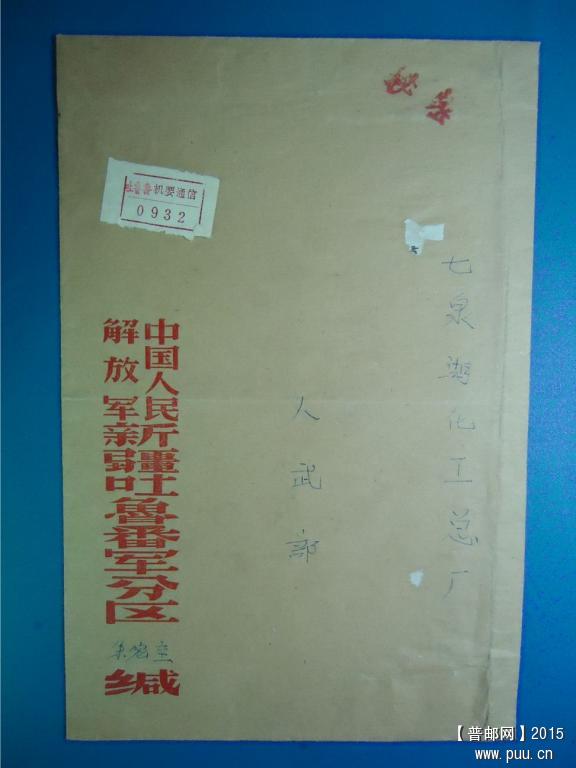 秘
吐鲁番机要通信
0932
七泉湖化工总厂
人武部
中国人民
解放军
新疆吐鲁番军分区
缄
【普邮网】2015
www.puu.cn